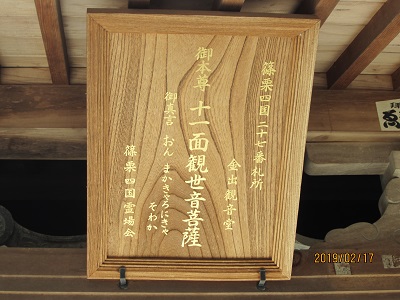 篠栗四国二十七番札所
金出観音堂
御本尊 十一面観世音菩薩
御真言 おん まかきゃろにきゃ
そわか
篠栗四国霊場会
2019/02/17